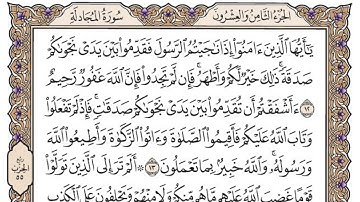 الجُزْءُ الثَّامِنُ وَالعِشْرُونَ سُورَةُ المُجَادلَةِ
يَٰٓأَيُّهَا ٱلَّذِينَ ءَامَنُوٓاْ إِذَا نَٰجَيْتُمُ ٱلرَّسُولَ فَقَدِّمُواْ بَيْنَ يَدَىْ نَجْوَىٰكُمْ
صَدَقَةً ۚ ذَٰلِكَ خَيْرٌ لَّكُمْ وَأَطْهَرُ ۚ فَإِن لَّمْ تَجِدُواْ فَإِنَّ ٱللَّهَ غَفُورٌ رَّحِيمٌ
١٢ ءَأَشْفَقْتُمْ أَن تُقَدِّمُواْ بَيْنَ يَدَىْ نَجْوَىٰكُمْ صَدَقَٰتٍ ۚ فَإِذْ لَمْ تَفْعَلُواْ
وَتَابَ ٱللَّهُ عَلَيْكُمْ فَأَقِيمُواْ ٱلصَّلَوٰةَ وَءَاتُواْ ٱلزَّكَوٰةَ وَأَطِيعُواْ ٱللَّهَ
وَرَسُولَهُۥ ۚ وَٱللَّهُ خَبِيرٌۢ بِمَا تَعْمَلُونَ ١٣ ۞ أَلَمْ تَرَ إِلَى ٱلَّذِينَ تَوَلَّوْاْ
قَوْمًا غَضِبَ ٱللَّهُ عَلَيْهِم مَّا هُم مِّنكُمْ وَلَا مِنْهُمْ وَيَحْلِفُونَ عَلَى ٱلْكَذِبِ
ربع
الحزب
٥٥